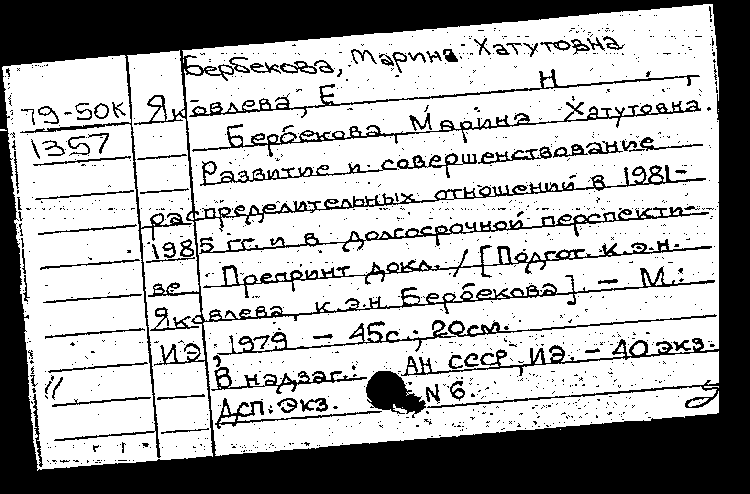 Бербекова, Марина Хатутовна
79-50К Яковлева, Е Н
1357 Бербекова, Марина Хатутовна.
Развитие и совершенствование
распределительных отношений в 1981-
1985 гг. и в долгосрочной перспекти-
ве Препринт докл. / [Подгот. к.э.н.
Яковлева, к.э.н. Бербекова]. - М.:
ИЭ, 1979 - 45с.; 20см.
В надзаг.: АН СССР, ИЭ. - 40 экз.
Дсп. Экз. N 6.